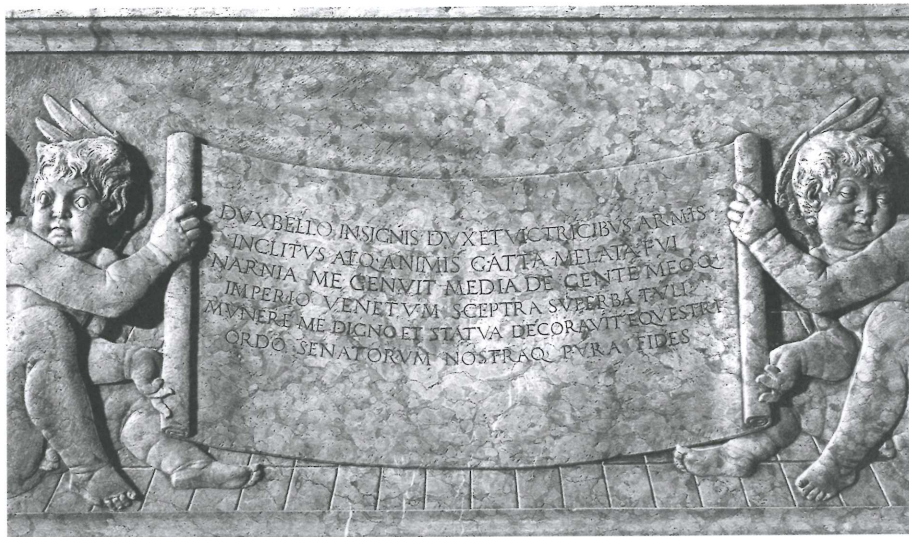 DVX BELLO INSIGNIS DVX ET VICTRICIBVS ARMIS
INCLITVS ATQ ANIMIS GATTA MELATA FVI
NARNIA ME GENVIT MEDIA DE GENTE MEOQ
IMPERIO VENETVM SCEPTRA SVPERBA TVLI
MVNERE ME DIGNO ET STATVA DECORAVIT EQVESTRI
ORDO SENATORVM NOSTRAQ PVRA FIDES